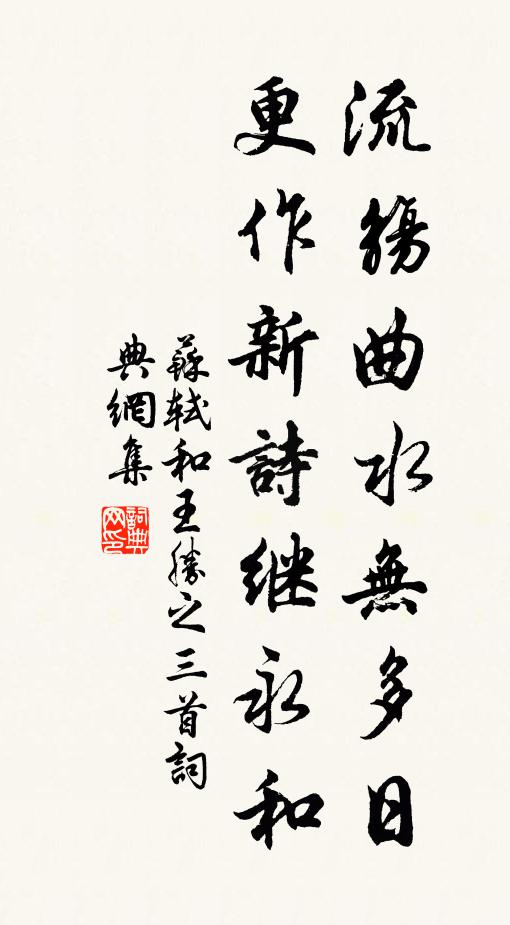 流觴曲水無多日
更作新詩継永和
蘇軾和王勝之三首詞
典網集
詞典网印